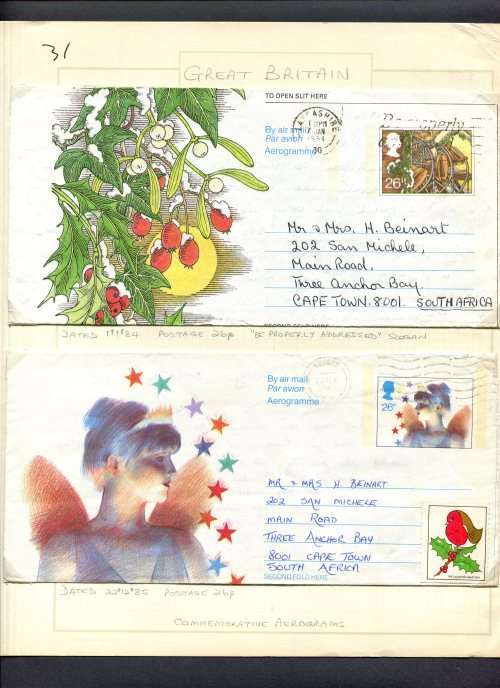 31
GREAT BRITAIN
TO OPEN SLIT HERE
By air mail
Par avion
Aerogramme
1 30PM
JAN
26
Mr & Mrs. H. Beinart
202 San Michele,
Main Road,
Three Anchor Bay.
CAPE TOWN. 8001. SOUTH AFRICA
SECOND FOLD HERE
DATED POSTAGE 26p "BE PROPERLY ADDRESSED" SLOGAN
By air mail
Par avion
Aerogramme
26
MR & MRS H BEINART
202 SAN MICHELE
MAIN ROAD
THREE ANCHOR BAY
8001 CAPE TOWN
SOUTH AFRICA
SECOND FOLD HERE
DATED POSTAGE 26p
COMMEMORATIVE AEROGRAMS